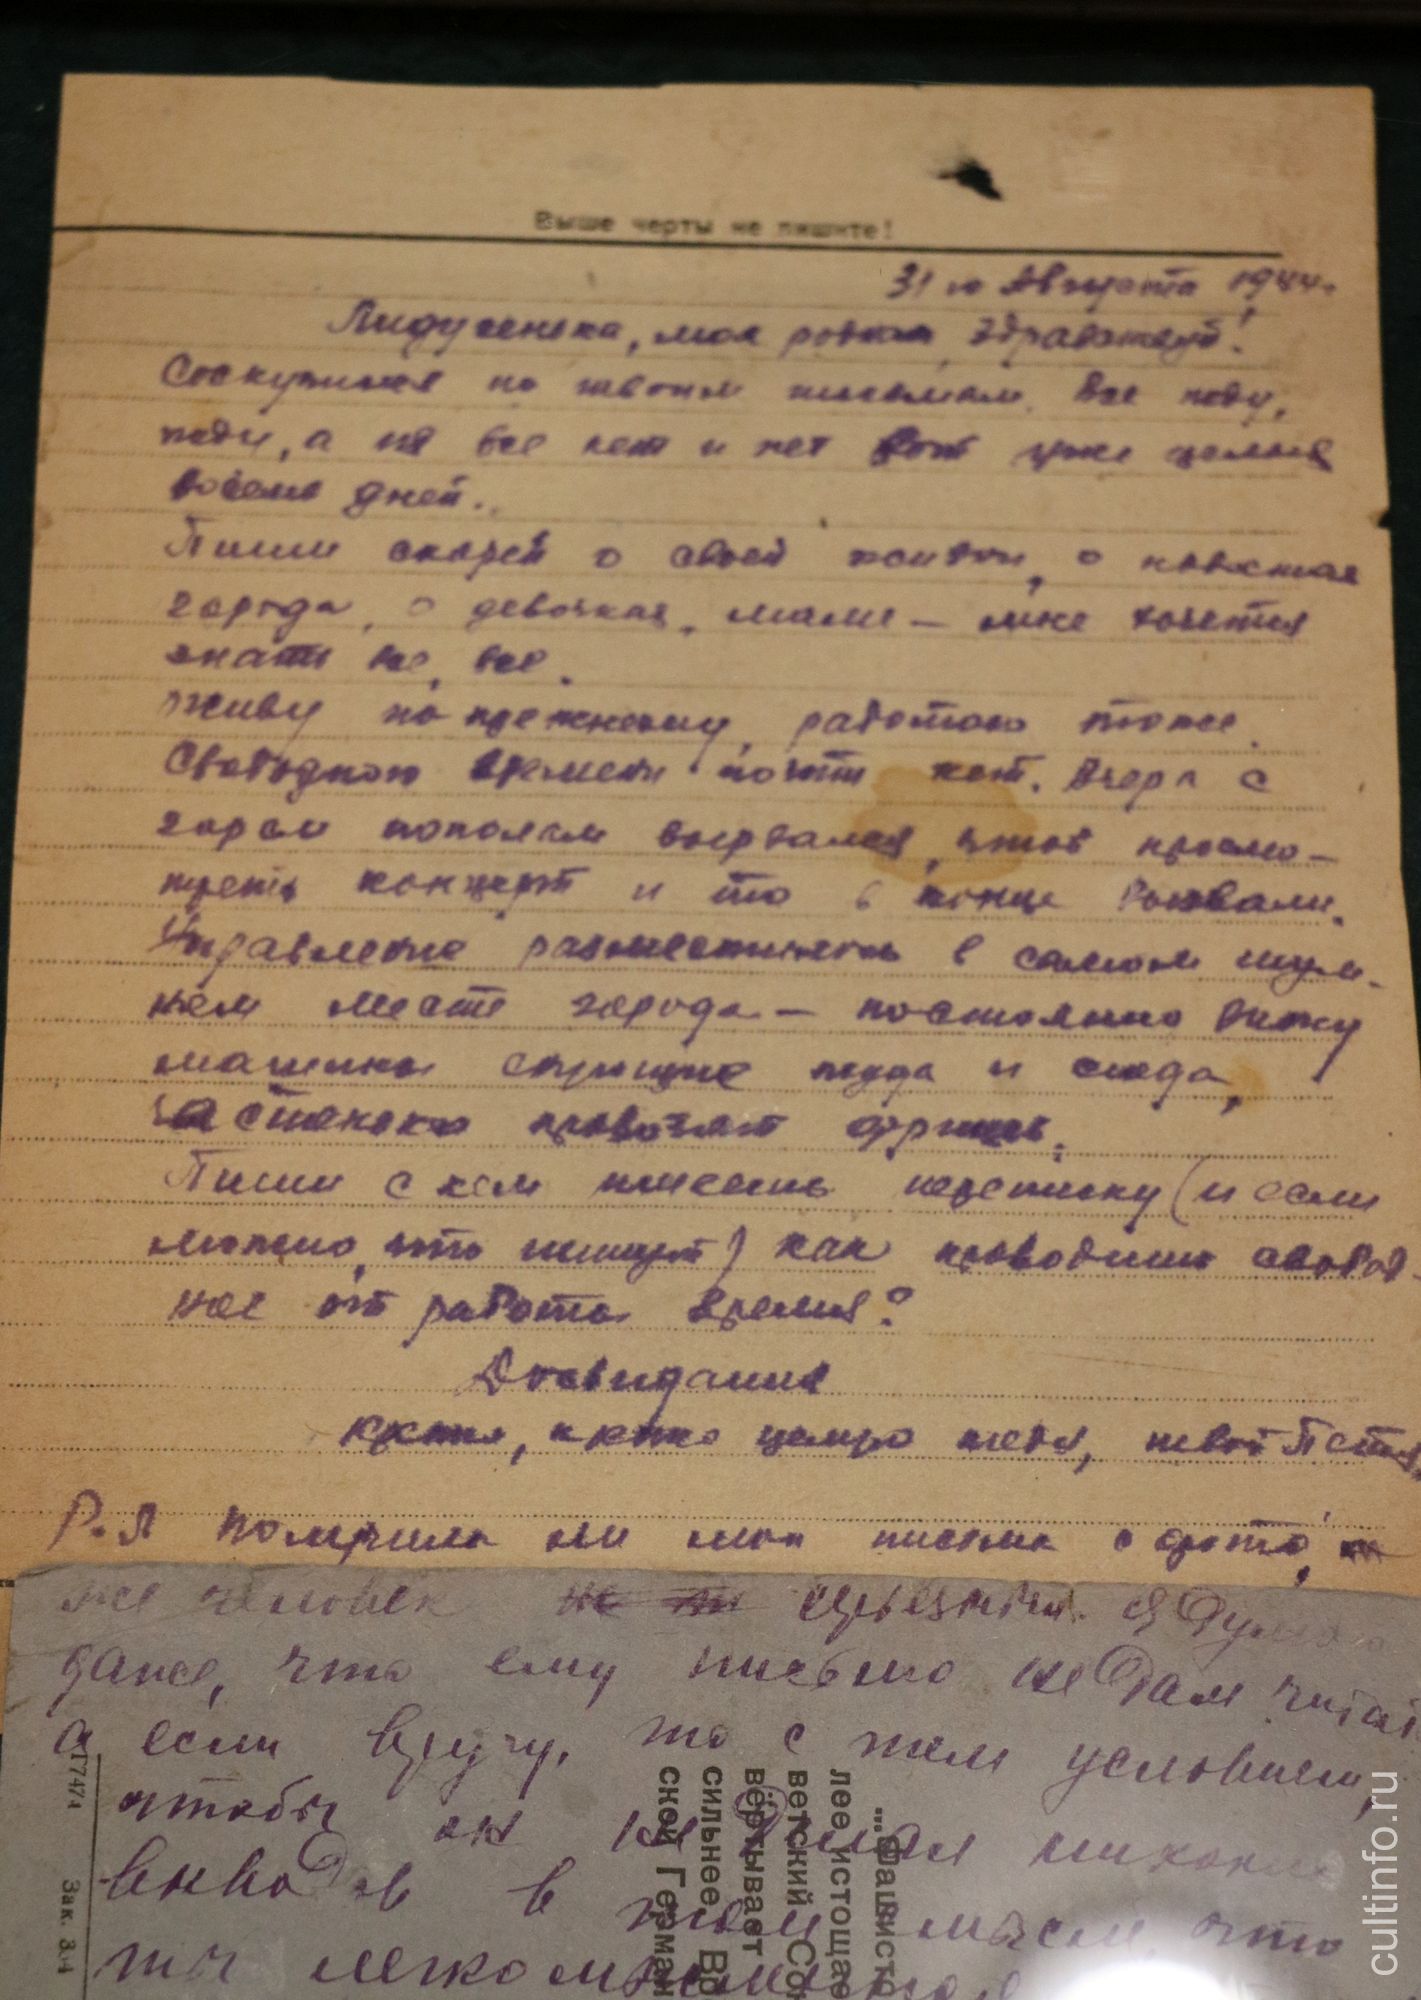 Выше черты не пишите!
31 го Августа 1944.
Лидусенька, моя родная, здравствуй!
Соскучился по твоим письмам. Все жду,
жду, а их все нет и нет вот уже целых
восемь дней..
Пиши скорей о своей жизни, о новостях
города, о девочках, маме — мне хочется
знать все, все.
Живу по прежнему, работаю тоже.
Свободного времени почти нет. Вчера с
горем пополам вырвался, чтоб просмо-
треть концерт и то в конце вызвали.
Управление разместилось в самом шум-
ном месте города — постоянно вижу
машины снующие туда и сюда,
частенько провозят фрицев.
Пиши с кем имеешь переписку (и если
можно, что пишут) как проводишь свобод-
ное от работы время?
Досвидания
Крепко, крепко целую тебя, твой Петя,
P.S Получила ли мои письма с фото,
же человек не
даже, что ему письмо не дам читат
а если вручу, то с тем условием,
чтобы он не делал никаких
выводов в том смысле, что
ты легкомысленная
17474
Зак. 34
„Фашистс
лее истощае
ветский Со
вёртывает
сильнее. Вр
ской Герман
cultinfo.ru